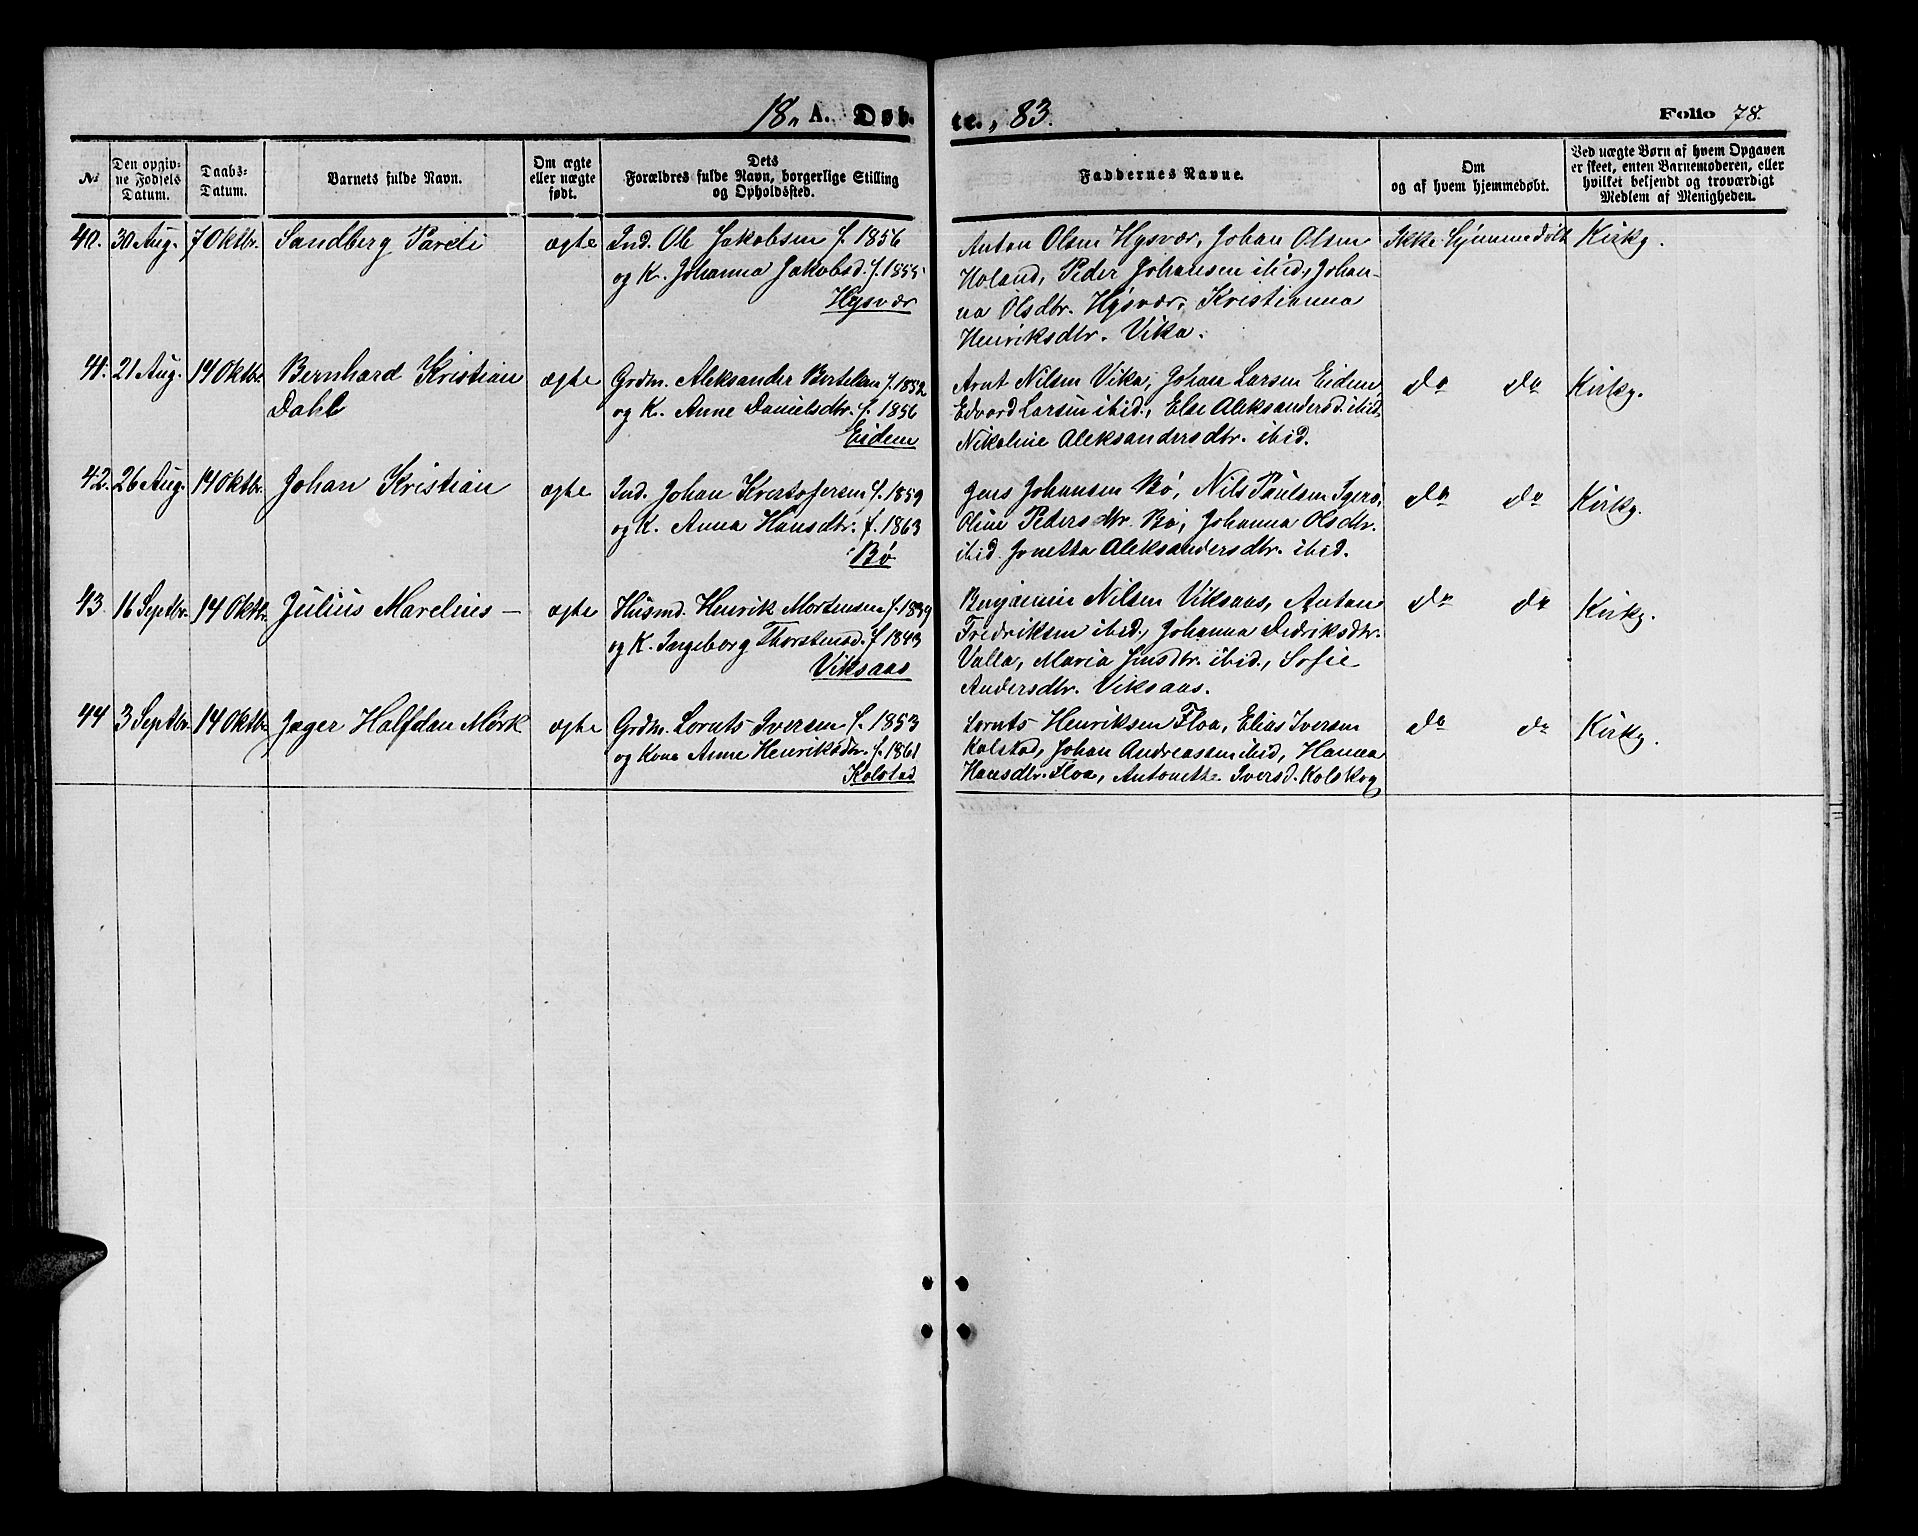 18 A. Døb-
te. 83.
Folio 78.
No
Den opgiv-
ne Fødsels
Datum.
Daabs-
Datum.
Barnets fulde Navn.
Om ægte
eller uægte
født.
Dets
Forældres fulde Navn, borgerlige Stilling
og Opholdssted.
Faddernes Navne.
Om
og af hvem hjemmedøbt.
Ved uægte Børn af hvem Opgaven
er skeet, enten Barnemoderen, eller
hvilket bekjendt og troværdigt
Medlem af Menigheden.
40. 30 Aug. 7 Oktbr. Sandberg Pareli ægte Ind. Ole Jakobsen f. 1856
og K. Johanna Jakobsd. f. 1855
Hysvær
Anton Olsen Hysvær, Johan Olsen
Holand, Peder Johansen ibid., Johan-
na Olsdtr. Hysvær, Kristianna
Henriksdtr. Vika.
Ikke hjemmedøbt Kirkg.
41. 21 Aug. 14 Oktbr. Bernhard Kristian
Dahl
ægte Grdm. Aleksander Bertelsen f. 1852
og K. Anne Danielsdtr. f. 1856
Eidem
Arnt Nilsen Vika, Johan Larsen Eidem,
Edvard Larsen ibid., Else Aleksandersd. ibid.
Nikoline Aleksandersdtr. ibid.
do do Kirkg.
42. 26 Aug. 14 Oktbr. Johan Kristian ægte Ind. Johan Kristofersen f. 1859
og K. Anna Hansdtr. f. 1863
Bø
Jens Johansen Bø, Nils Paulsen Igerø,
Oline Pedersdtr. Bø, Johanna Olsdtr.
ibid. Jonetta Aleksandersdtr. ibid.
do do Kirkg.
43. 16 Septbr. 14 Oktbr. Julius Marelius — ægte Husmd. Henrik Mortensen f. 1839
og K. Ingeborg Thorstensd. f. 1843
Viksaas
Benjamin Nilsen Viksaas, Anton
Fredriksen ibid., Johanna Didriksdtr.
Valla, Maria Jensdtr. ibid., Sofie
Andersdtr. Viksaas.
do do Kirkg.
44 3 Septbr. 14 Oktbr. Jæger Halfdan Mørk ægte Grdm. Lornts Iversen f. 1853
og Kone Anne Henriksdtr. f. 1861
Kolstad
Lornts Henriksen Floa, Elias Iversen
Kolstad, Johan Andreassen ibid, Hanna
Hansdtr. Floa, Antonette Iversd. Kolskog
do do Kirkg.